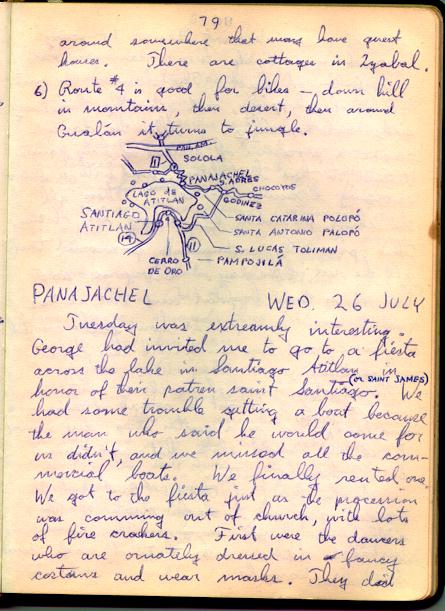 79
around somewhere that may have guest
houses. There are cottages in Izabal.
6) Route #4 is good for bikes – down hill
in mountains, then desert, then around
Gualán it turns to jungle.
PAN. AM.
1
SOLOLA
PANAJACHEL
S. ADRES
CHOCOYOS
LAGO DE
ATITLAN
GODINEZ
SANTIAGO
ATITLAN
SANTA CATARINA POLOPÓ
SANTA ANTONIO PALOPÓ
S. LUCAS TOLIMAN
14
11
CERRO
DE ORO
PAMPOJILÁ
PANAJACHEL WED. 26 JULY
Tuesday was extreamly interesting.
George had invited me to go to a fiesta
across the lake in Santiago Atitlan in
(OR SAINT JAMES)
honor of their patren saint Santiago. We
had some trouble getting a boat because
the man who said he would come for
us didn't, and we missed all the com-
mercial boats. We finally rented one.
We got to the fiesta just as the procession
was comming out of church, with lots
of fire crackers. First were the dancers
who are ornately dressed in fancy
costums and wear masks. They did